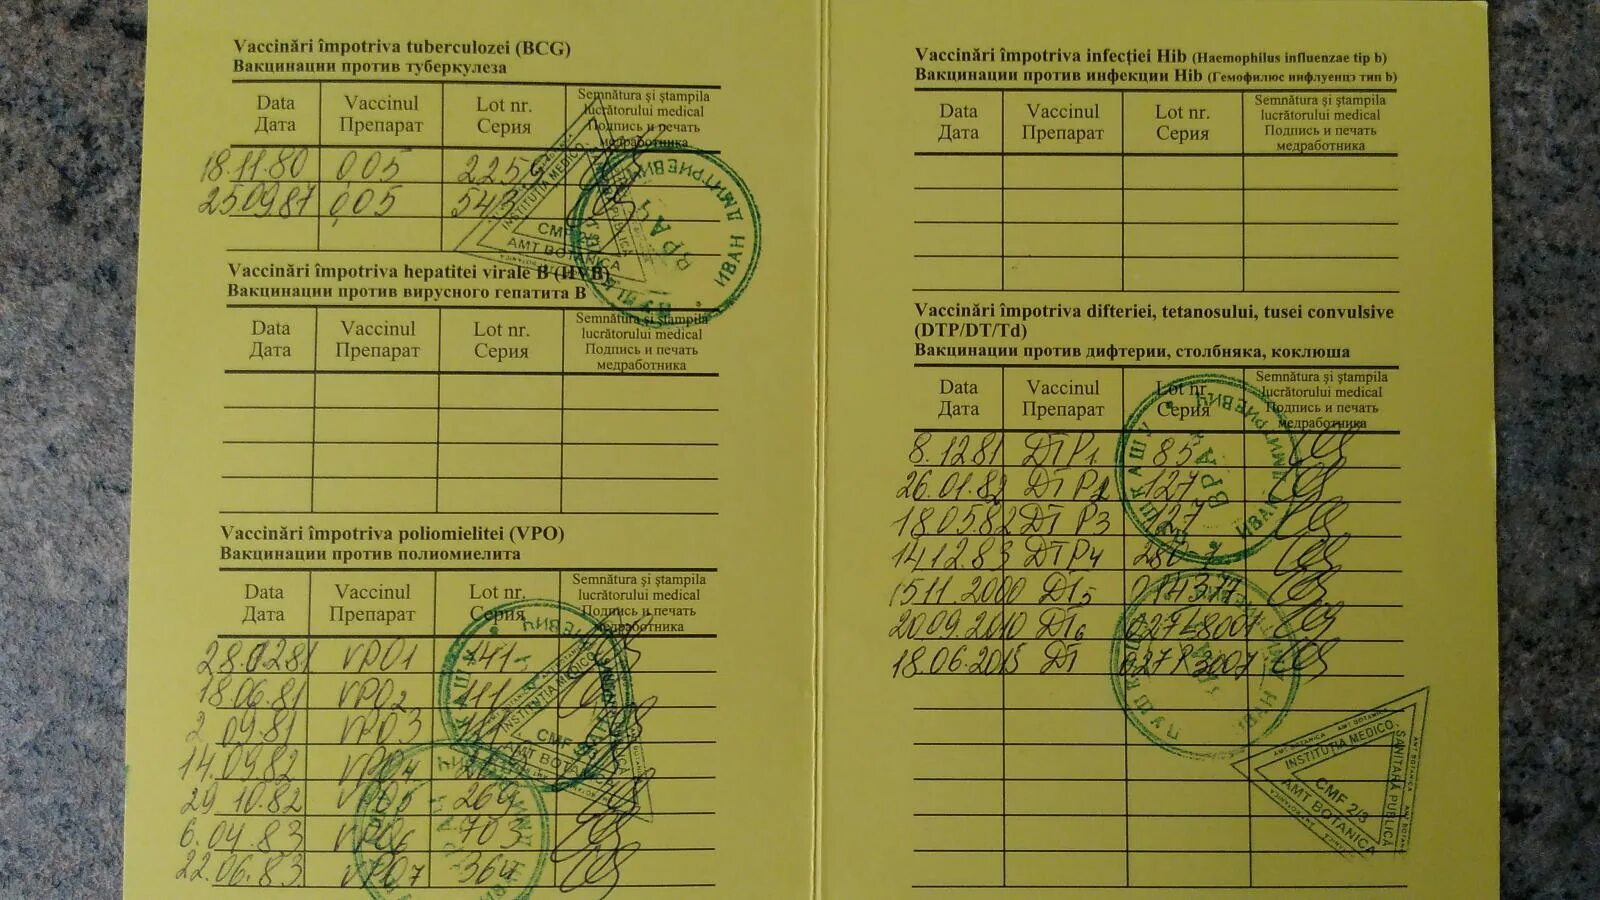 Vaccinări împotriva tuberculozei (BCG)
Вакцинации против туберкулеза
Data Vaccinul Lot nr. Semnătura şi ştampila
Дата Препарат Серия lucrătorului medical
Подпись и печать
медработника
18.11.80 0,05 2259
25.09.87 0,05 543
INSTITUŢIA MEDICO
CMF
AMT BOTANICA
ИВАН ДМИТРИЕВИЧ
ВРАЧ
Vaccinări împotriva hepatitei virale B (HVB)
Вакцинации против вирусного гепатита В
Data Vaccinul Lot nr. Semnătura şi ştampila
Дата Препарат Серия lucrătorului medical
Подпись и печать
медработника
Vaccinări împotriva poliomielitei (VPO)
Вакцинации против полиомиелита
Data Vaccinul Lot nr. Semnătura şi ştampila
Дата Препарат Серия lucrătorului medical
Подпись и печать
медработника
VPO1 141
18.06.81 VPO2
2.09.81 VPO3
14.09.82 VPO4
29.10.82 VPO5
6.04.83 VPO6 703
22.06.83 VPO7 364
INSTITUŢIA MEDICO
CMF
Vaccinări împotriva infecţiei Hib (Haemophilus influenzae tip b)
Вакцинации против инфекции Hib (Гемофилюс инфлуенцэ тип b)
Data Vaccinul Lot nr. Semnătura şi ştampila
Дата Препарат Серия lucrătorului medical
Подпись и печать
медработника
Vaccinări împotriva difteriei, tetanosului, tusei convulsive
(DTP/DT/Td)
Вакцинации против дифтерии, столбняка, коклюша
Data Vaccinul Lot nr. Semnătura şi ştampila
Дата Препарат Серия lucrătorului medical
Подпись и печать
медработника
8.12 81 DTP1 85
26.01.82 DTP2 127
18.05.82 DTP3 127
14.12.83 DTP4
15.11.2000 DT5
20.09.2010 DT6
18.06.2015 DT
ПУШКАШУ ИВАН ДМИТРИЕВИЧ
ВРАЧ
INSTITUŢIA MEDICO
SANITARĂ PUBLICĂ
CMF 2/3
AMT BOTANICA